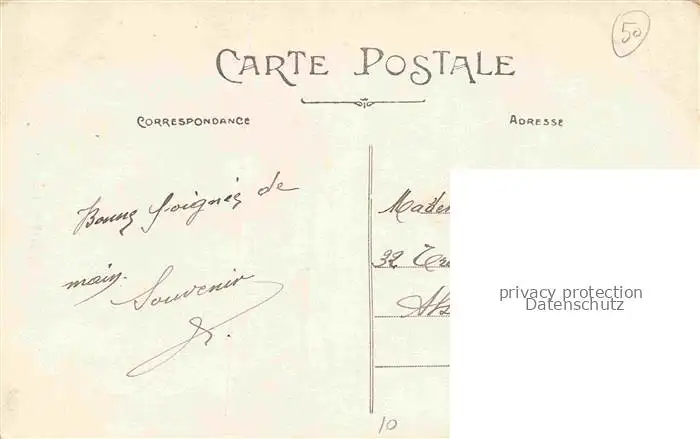 50
CARTE POSTALE
CORRESPONDANCE
ADRESSE
Bonne poignée de
main.
Souvenir
32
privacy protection
Datenschutz
10